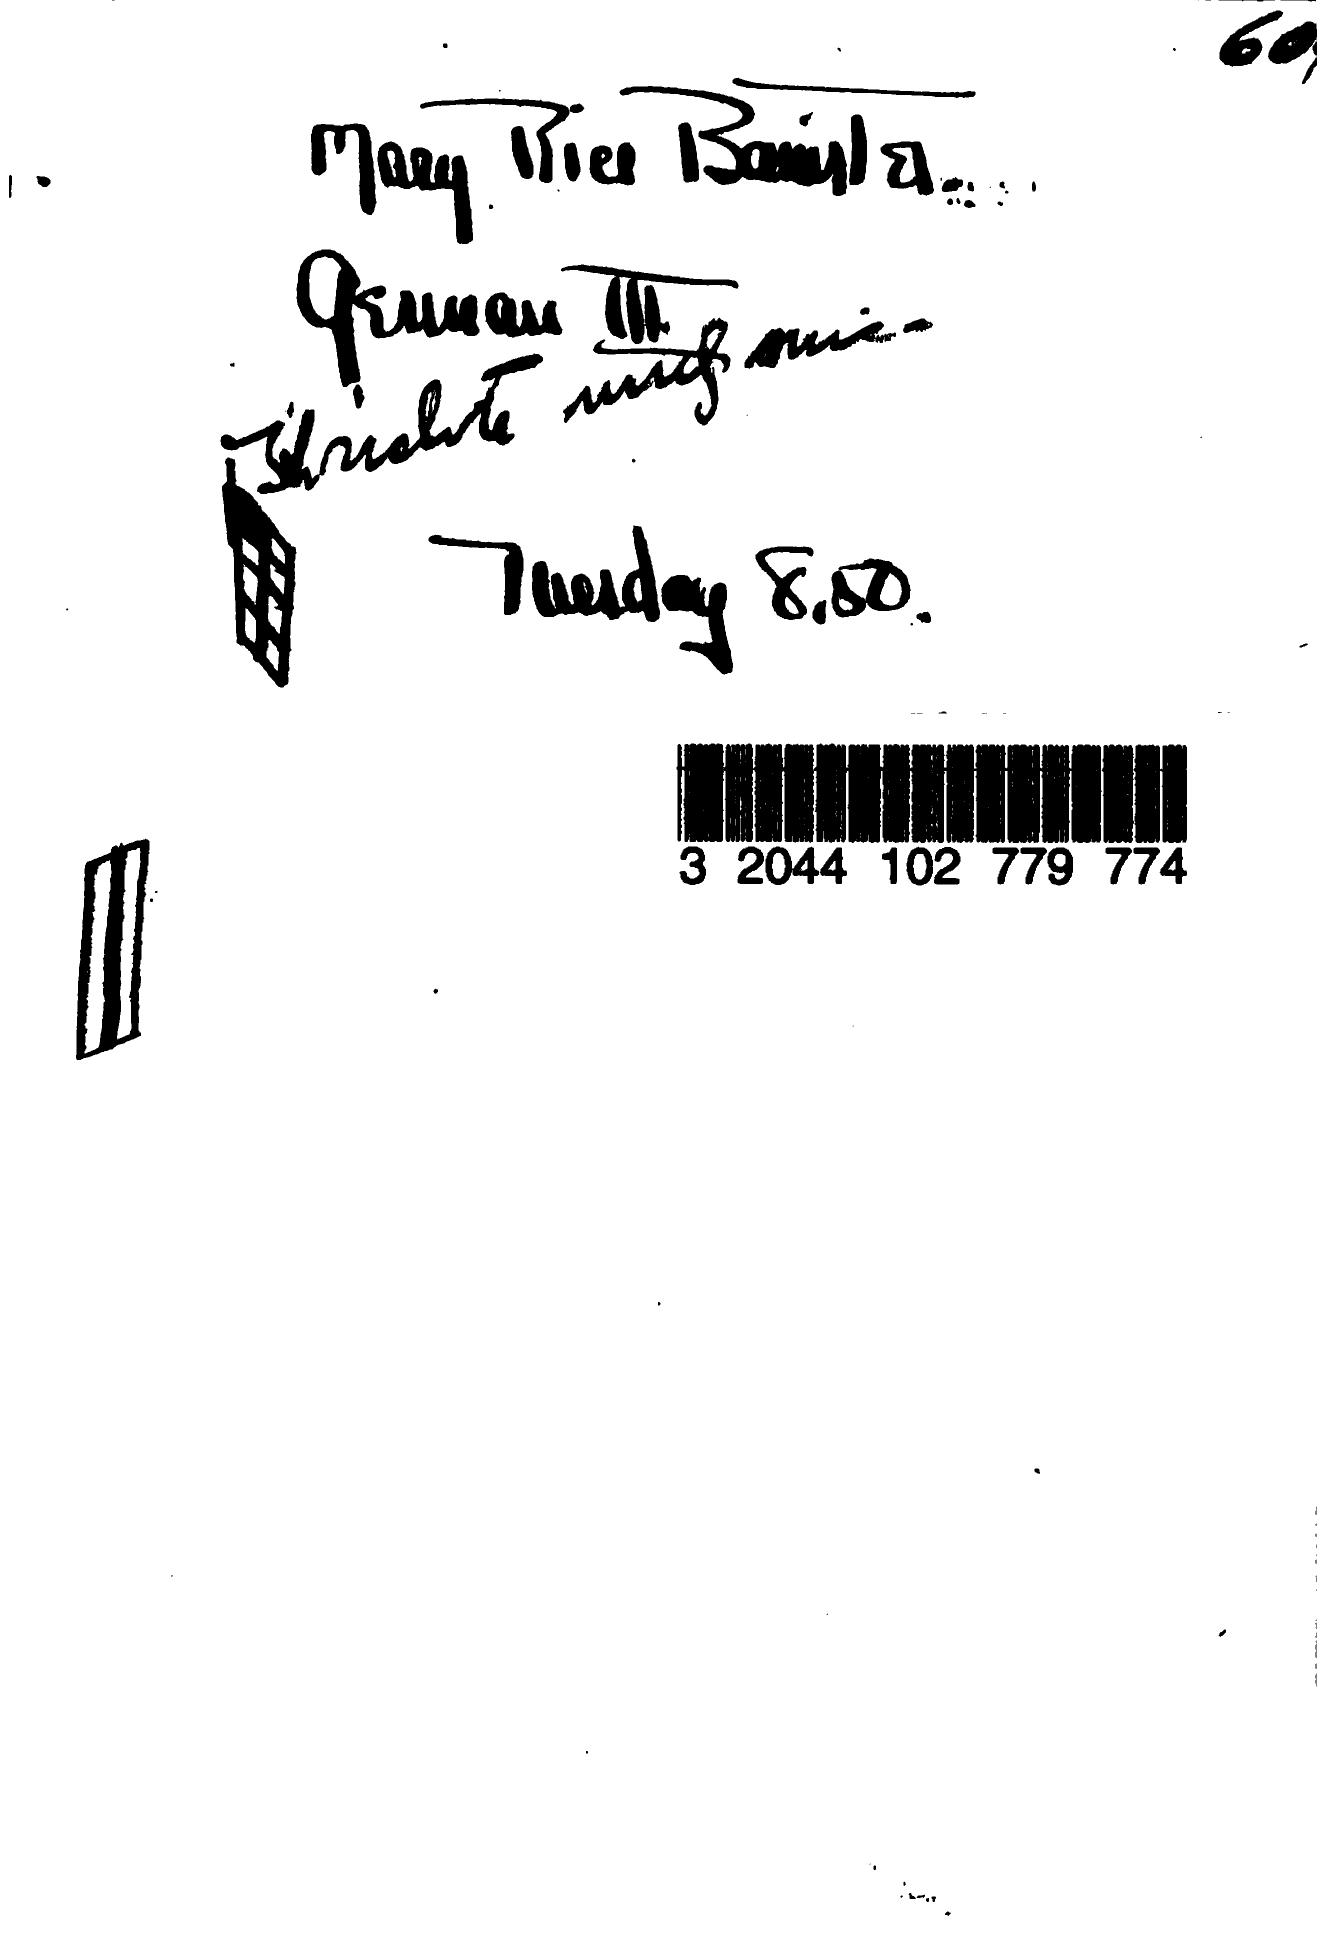 60,
Mary Rice Bannister
German III
Tuesday 8.50.
3 2044 102 779 774